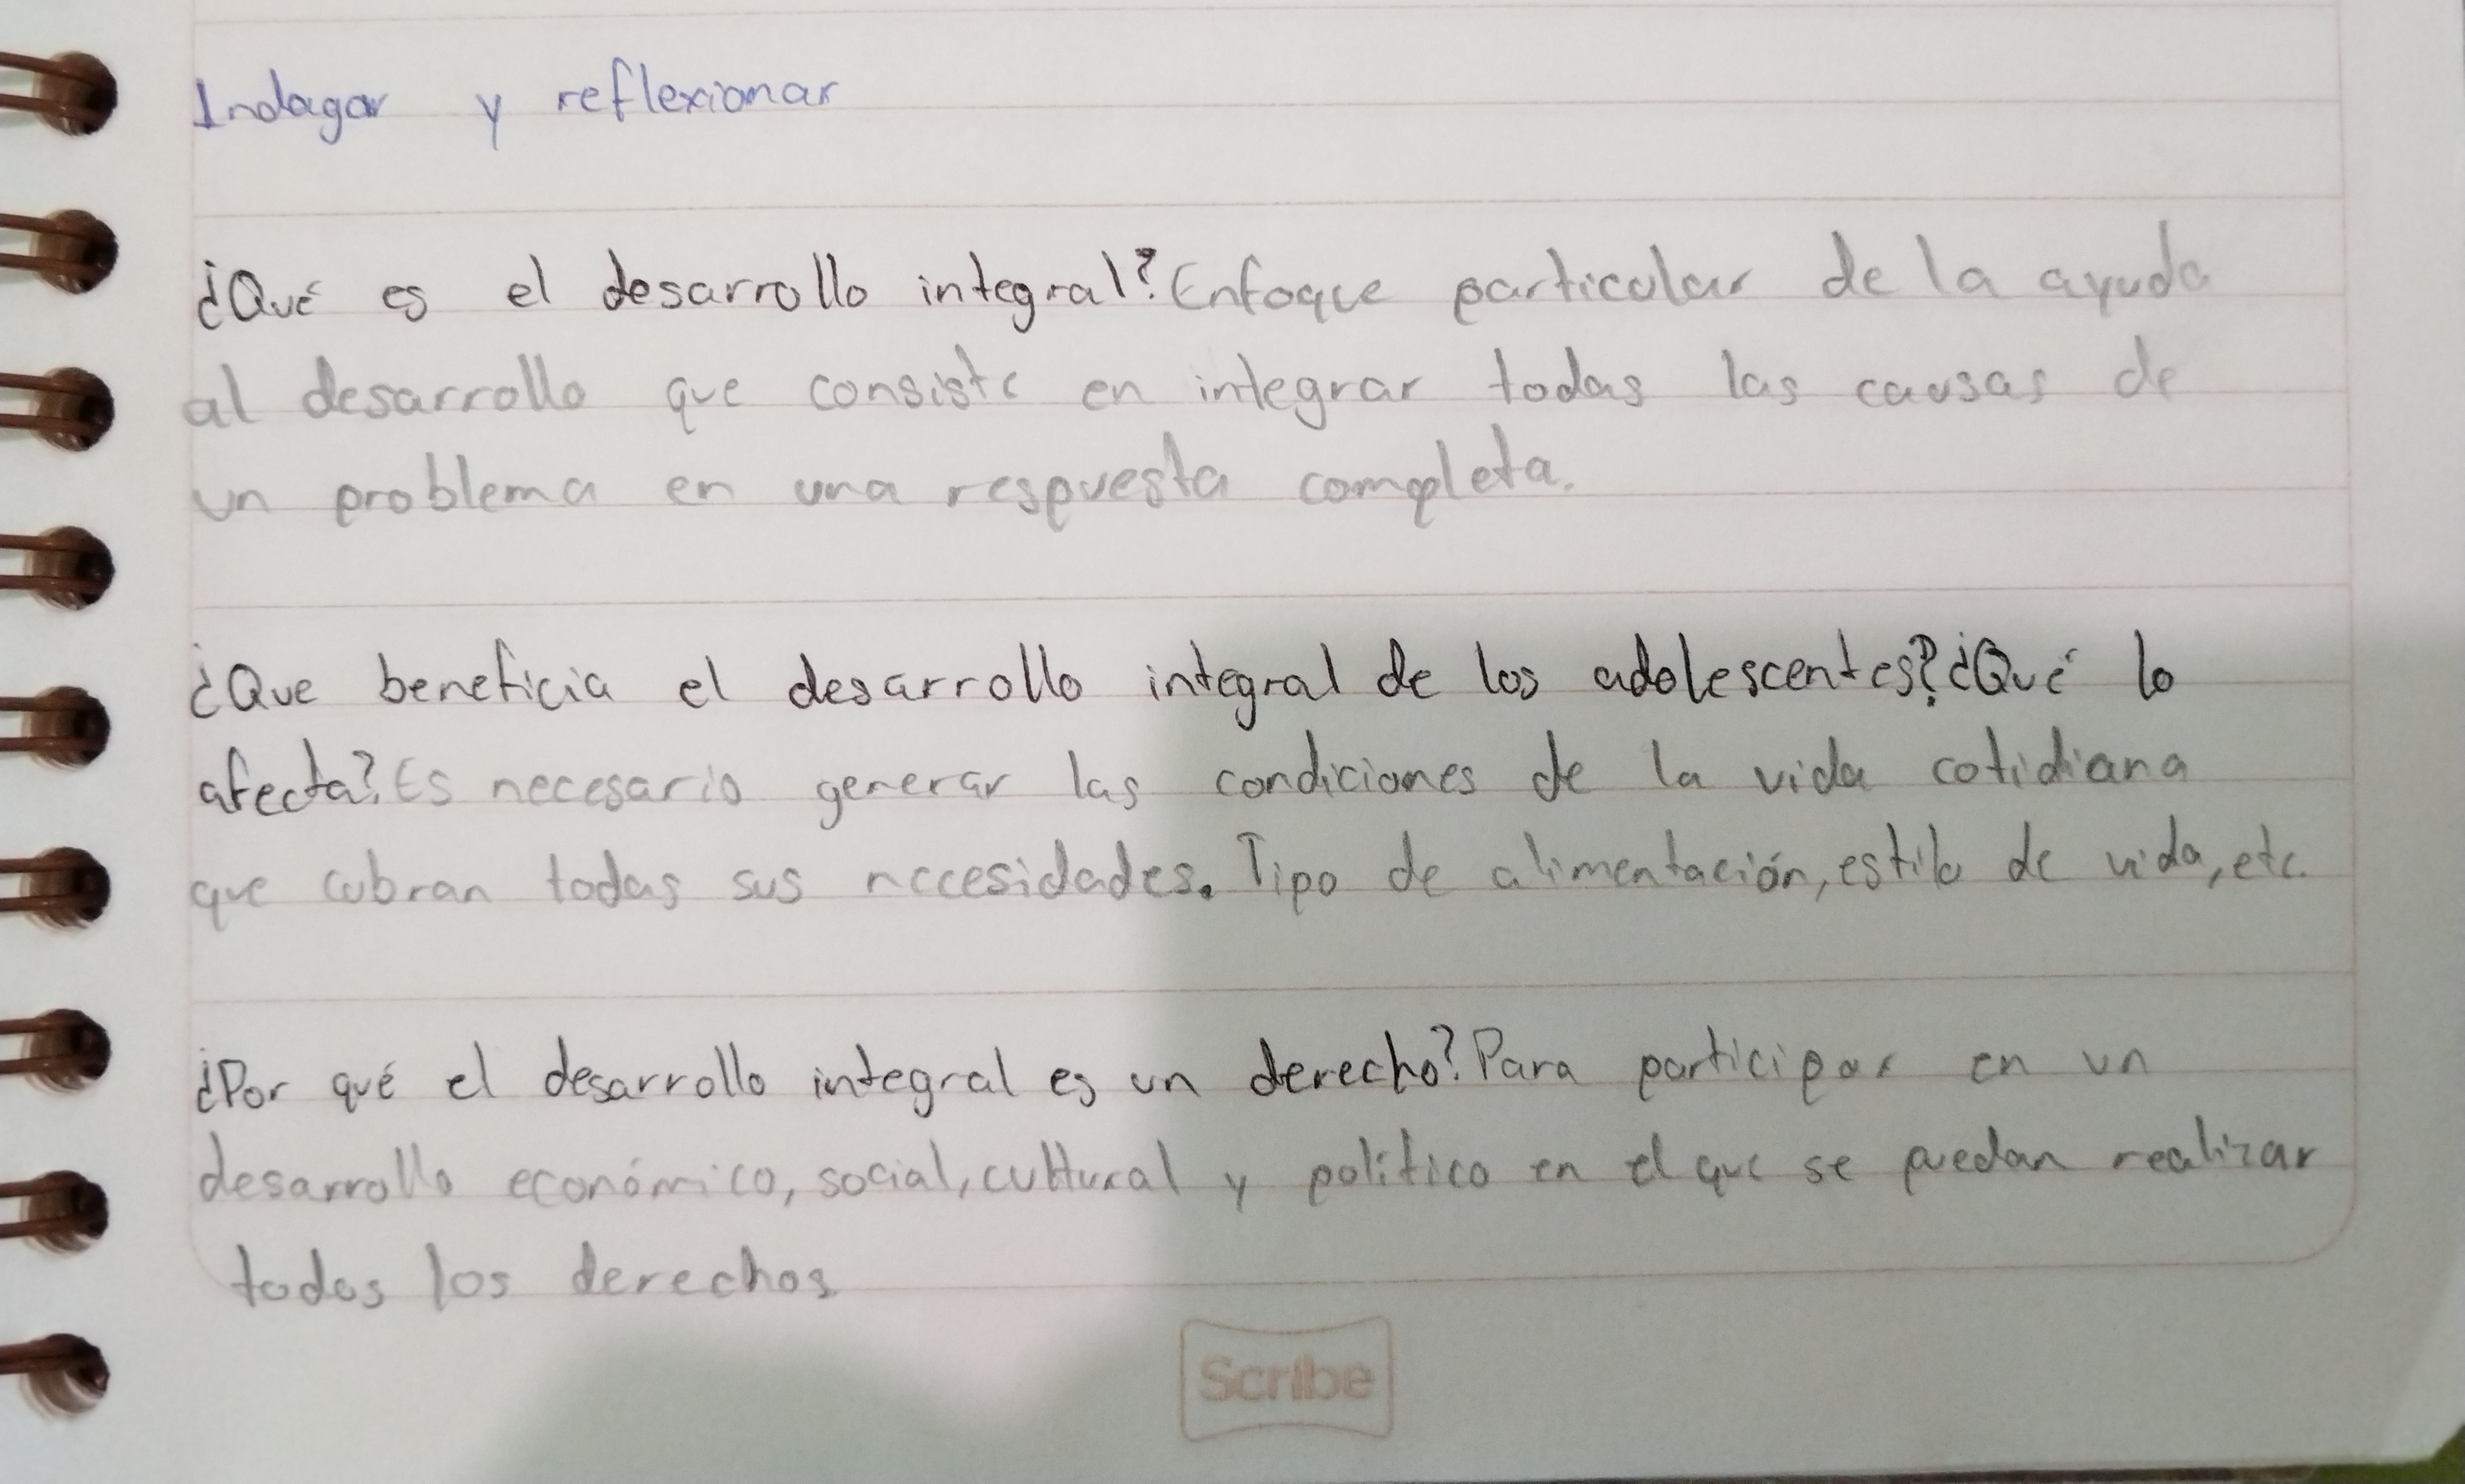 Indagar y reflexionar
¿Qué es el desarrollo integral? Enfoque particular de la ayuda
al desarrollo que consiste en integrar todas las causas de
un problema en una respuesta completa.
¿Que beneficia el desarrollo integral de los adolescentes? ¿Qué lo
afecta? Es necesario generar las condiciones de la vida cotidiana
que cubran todas sus necesidades. Tipo de alimentación, estilo de vida, etc.
¿Por qué el desarrollo integral es un derecho? Para participar en un
desarrollo económico, social, cultural y político en el que se puedan realizar
todos los derechos
Scribe